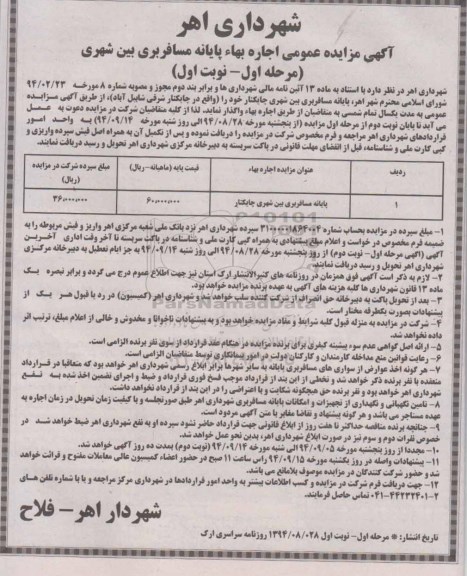 شهرداری اهر
آگهی مزایده عمومی اجاره بهاء پایانه مسافربری بین شهری
(مرحله اول- نوبت اول)
شهرداری اهر در نظر دارد با استناد به ماده ۱۳ آئین نامه مالی شهرداری ها و برابر بند دوم مجوز و مصوبه شماره ۸ مورخه ۹۴/۰۲/۲۳
شورای اسلامی محترم شهر اهر، پایانه مسافربری بین شهری چایکنار خود را (واقع در چایکنار شرقی شاپیل آباد)، از طریق آگهی مزایده
عمومی به مدت یکسال تمام شمسی به متقاضیان از طریق اجاره بهاء واگذار نماید. لذا از کلیه متقاضیان شرکت در مزایده دعوت به عمل
می آید تا پایان نوبت دوم از مرحله اول مزایده (از پنجشنبه مورخه ۹۴/۰۸/۲۸ الی روز شنبه مورخه ۹۴/۰۹/۱۴) به واحد امور
قراردادهای شهرداری اهر مراجعه و فرم مخصوص شرکت در مزایده را دریافت نموده و پس از تکمیل آن به همراه اصل فیش سپرده واریزی و
کپی کارت ملی و شناسنامه، قبل از انقضای مهلت قانونی در پاکت سربسته به دبیرخانه مرکزی شهرداری اهر تحویل و رسید دریافت نمایند.
ردیف عنوان مزایده اجاره بهاء قیمت پایه (ماهیانه-ریال) مبلغ سپرده شرکت در مزایده (ریال)
۱ پایانه مسافربری بین شهری چایکنار ۶۰,۰۰۰,۰۰۰ ۳۶,۰۰۰,۰۰۰
۱- مبلغ سپرده در مزایده بحساب شماره ۳۱۰۰۰۰۱۸۶۴۰۰۴ سپرده شهرداری اهر نزد بانک ملی شعبه مرکزی اهر واریز و فیش مربوطه را به
ضمیمه فرم مخصوص در خواست و اعلام مبلغ پیشنهادی به همراه کپی کارت ملی و شناسنامه در پاکت سربسته تا آخر وقت اداری آخرین
آگهی (آگهی مرحله اول- نوبت دوم) از روز پنجشنبه مورخه ۹۴/۰۸/۲۸ الی روز شنبه ۹۴/۰۹/۱۴ به جز ایام تعطیل به دبیرخانه مرکزی
شهرداری اهر تحویل و رسید دریافت نمایند.
۲- لازم به ذکر است آگهی فوق همزمان در روزنامه های کثیرالانتشار ارک استان نیز جهت اطلاع عموم درج می گردد و برابر تبصره یک
ماده ۱۳ قانون شهرداری ها کلیه هزینه های آگهی به عهده برنده مزایده خواهد بود.
۳- بعد از تحویل پاکت به دبیرخانه حق انصراف از شرکت کننده سلب خواهد شد و شهرداری اهر (کمیسیون) در رد یا قبول هر یک از
پیشنهادات بصورت یکطرفه مختار است.
۴- شرکت در مزایده به منزله قبول کلیه شرایط و مفاد مزایده خواهد بود و به پیشنهادات ناخوانا و مخدوش و خالی از اعلام مبلغ، ترتیب اثر
داده نخواهد شد.
۵- ارائه اصل گواهی عدم سوء پیشینه کیفری برای برنده مزایده در هنگام عقد قرارداد از سوی نفر برنده الزامی است.
۶- رعایت قوانین منع مداخله کارمندان و کارکنان دولت در امور پیمانکاری توسط متقاضیان الزامی است.
۷- هر گونه اخذ عوارض از سواری های مسافربری پایانه به سایر شهرها برابر ابلاغ رسمی شهرداری اهر خواهد بود که متعاقبا در قرارداد
منعقده با نفر برنده ذکر خواهد شد و تخطی از این بند از قرارداد موجب فسخ فوری قرارداد و ضبط و اجرای تضمین اخذ شده به نفع
شهرداری اهر خواهد بود و نفر برنده حق هیچگونه شکایت و یا اعتراضی را در این بند از قرارداد نخواهد داشت.
۸- تامین نگهبانی و نگهداری از تجهیزات و امکانات پایانه مسافربری شهرداری اهر طبق صورتجلسه و با کیفیت زمان تحویل در زمان اجاره به
عهده مستاجر می باشد و هر گونه پیشنهاد و تقاضا مغایر با متن آگهی مردود است.
۹- چنانچه برنده مناقصه حداکثر تا هفت روز از ابلاغ قانونی جهت قرارداد حاضر نشود سپرده او به نفع شهرداری اهر ضبط خواهد شد در
خصوص نفرات دوم و سوم نیز در صورت ابلاغ شهرداری اهر، بدین نحو عمل خواهد شد.
۱۰- مجددا از روز پنجشنبه مورخه ۹۴/۰۹/۰۵ الی شنبه مورخه ۹۴/۰۹/۱۴ (نوبت دوم) بمدت ده روز آگهی خواهد شد.
۱۱- پیشنهادات واصله در روز یکشنبه مورخه ۹۴/۰۹/۱۵ راس ساعت ۱۱ صبح در حضور اعضاء کمیسیون عالی معاملات مفتوح و قرائت خواهد
شد و حضور شرکت کنندگان در مزایده موصوف بلامانع می باشد.
۱۲- جهت دریافت فرم شرکت در مزایده و کسب اطلاعات بیشتر به واحد امور قراردادها در شهرداری مرکز مراجعه و یا با شماره تلفن های
۲-۰۴۱-۴۴۲۳۲۴۰۱ تماس حاصل فرمایند.
شهردار اهر- فلاح
تاریخ انتشار: * مرحله اول- نوبت اول ۱۳۹۴/۰۸/۰۲۸ روزنامه سراسری ارک